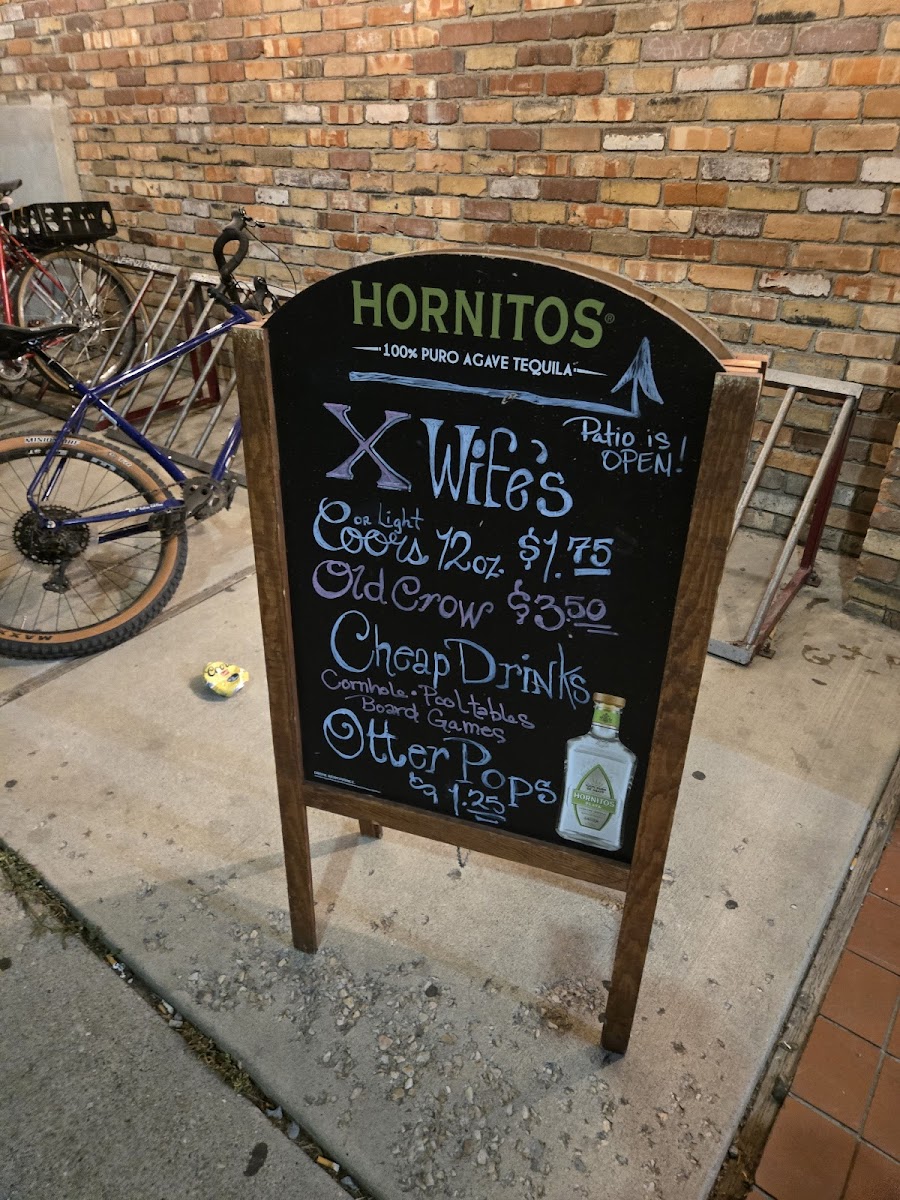 HORNITOS®
100% PURO AGAVE TEQUILA
Patio is
OPEN!
X Wife's
or Light
Coors 12oz. $1.75
Old Crow $3.50
Cheap Drinks
Cornhole • Pool tables
Board Games
Otter Pops
$1.25
HORNITOS
MAXX